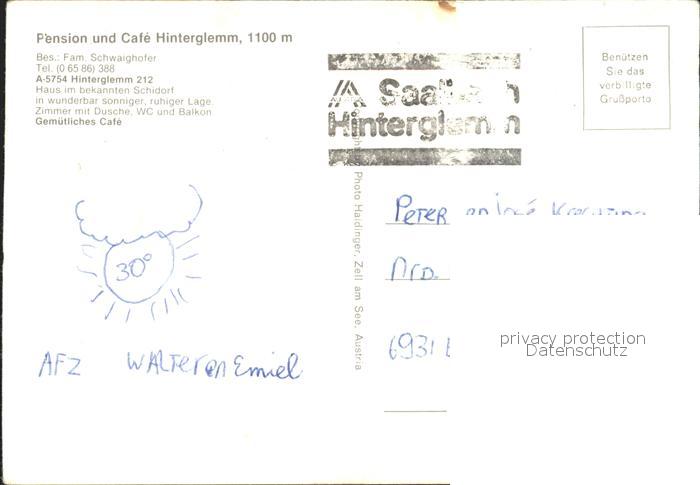 Pension und Café Hinterglemm, 1100 m
Bes.: Fam. Schwaighofer
Tel. (0 65 86) 388
A-5754 Hinterglemm 212
Haus im bekannten Schidorf
in wunderbar sonniger, ruhiger Lage.
Zimmer mit Dusche, WC und Balkon
Gemütliches Café
Hinterglemm
Benützen
Sie das
verbilligte
Grußporto
Photo Haidinger, Zell am See, Austria
30°
AFZ WALTER en Emiel
PETER en
6931
privacy protection
Datenschutz